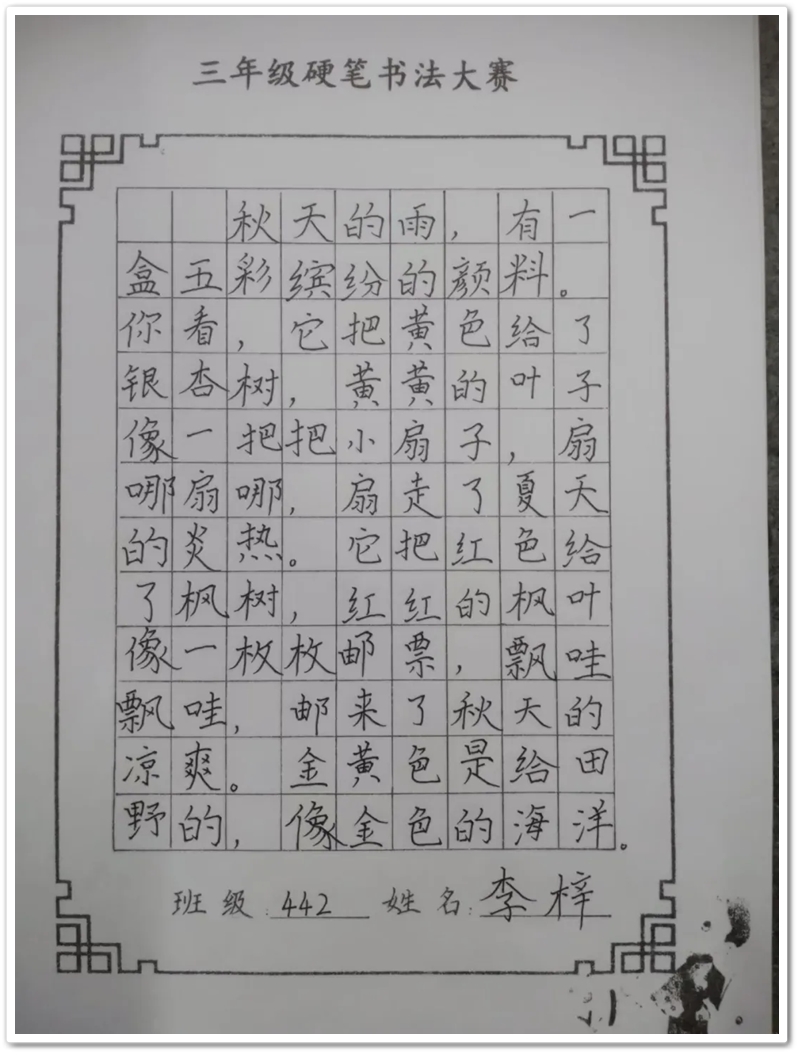 三年级硬笔书法大赛
秋天的雨，有一
盒五彩缤纷的颜料。
你看，它把黄色给了
银杏树，黄黄的叶子
像一把把小扇子，扇
哪扇哪，扇走了夏天
的炎热。它把红色给
了枫树，红红的枫叶
像一枚枚邮票，飘哇
飘哇，邮来了秋天的
凉爽。金黄色是给田
野的，像金色的海洋。
班级:442 姓名:李梓